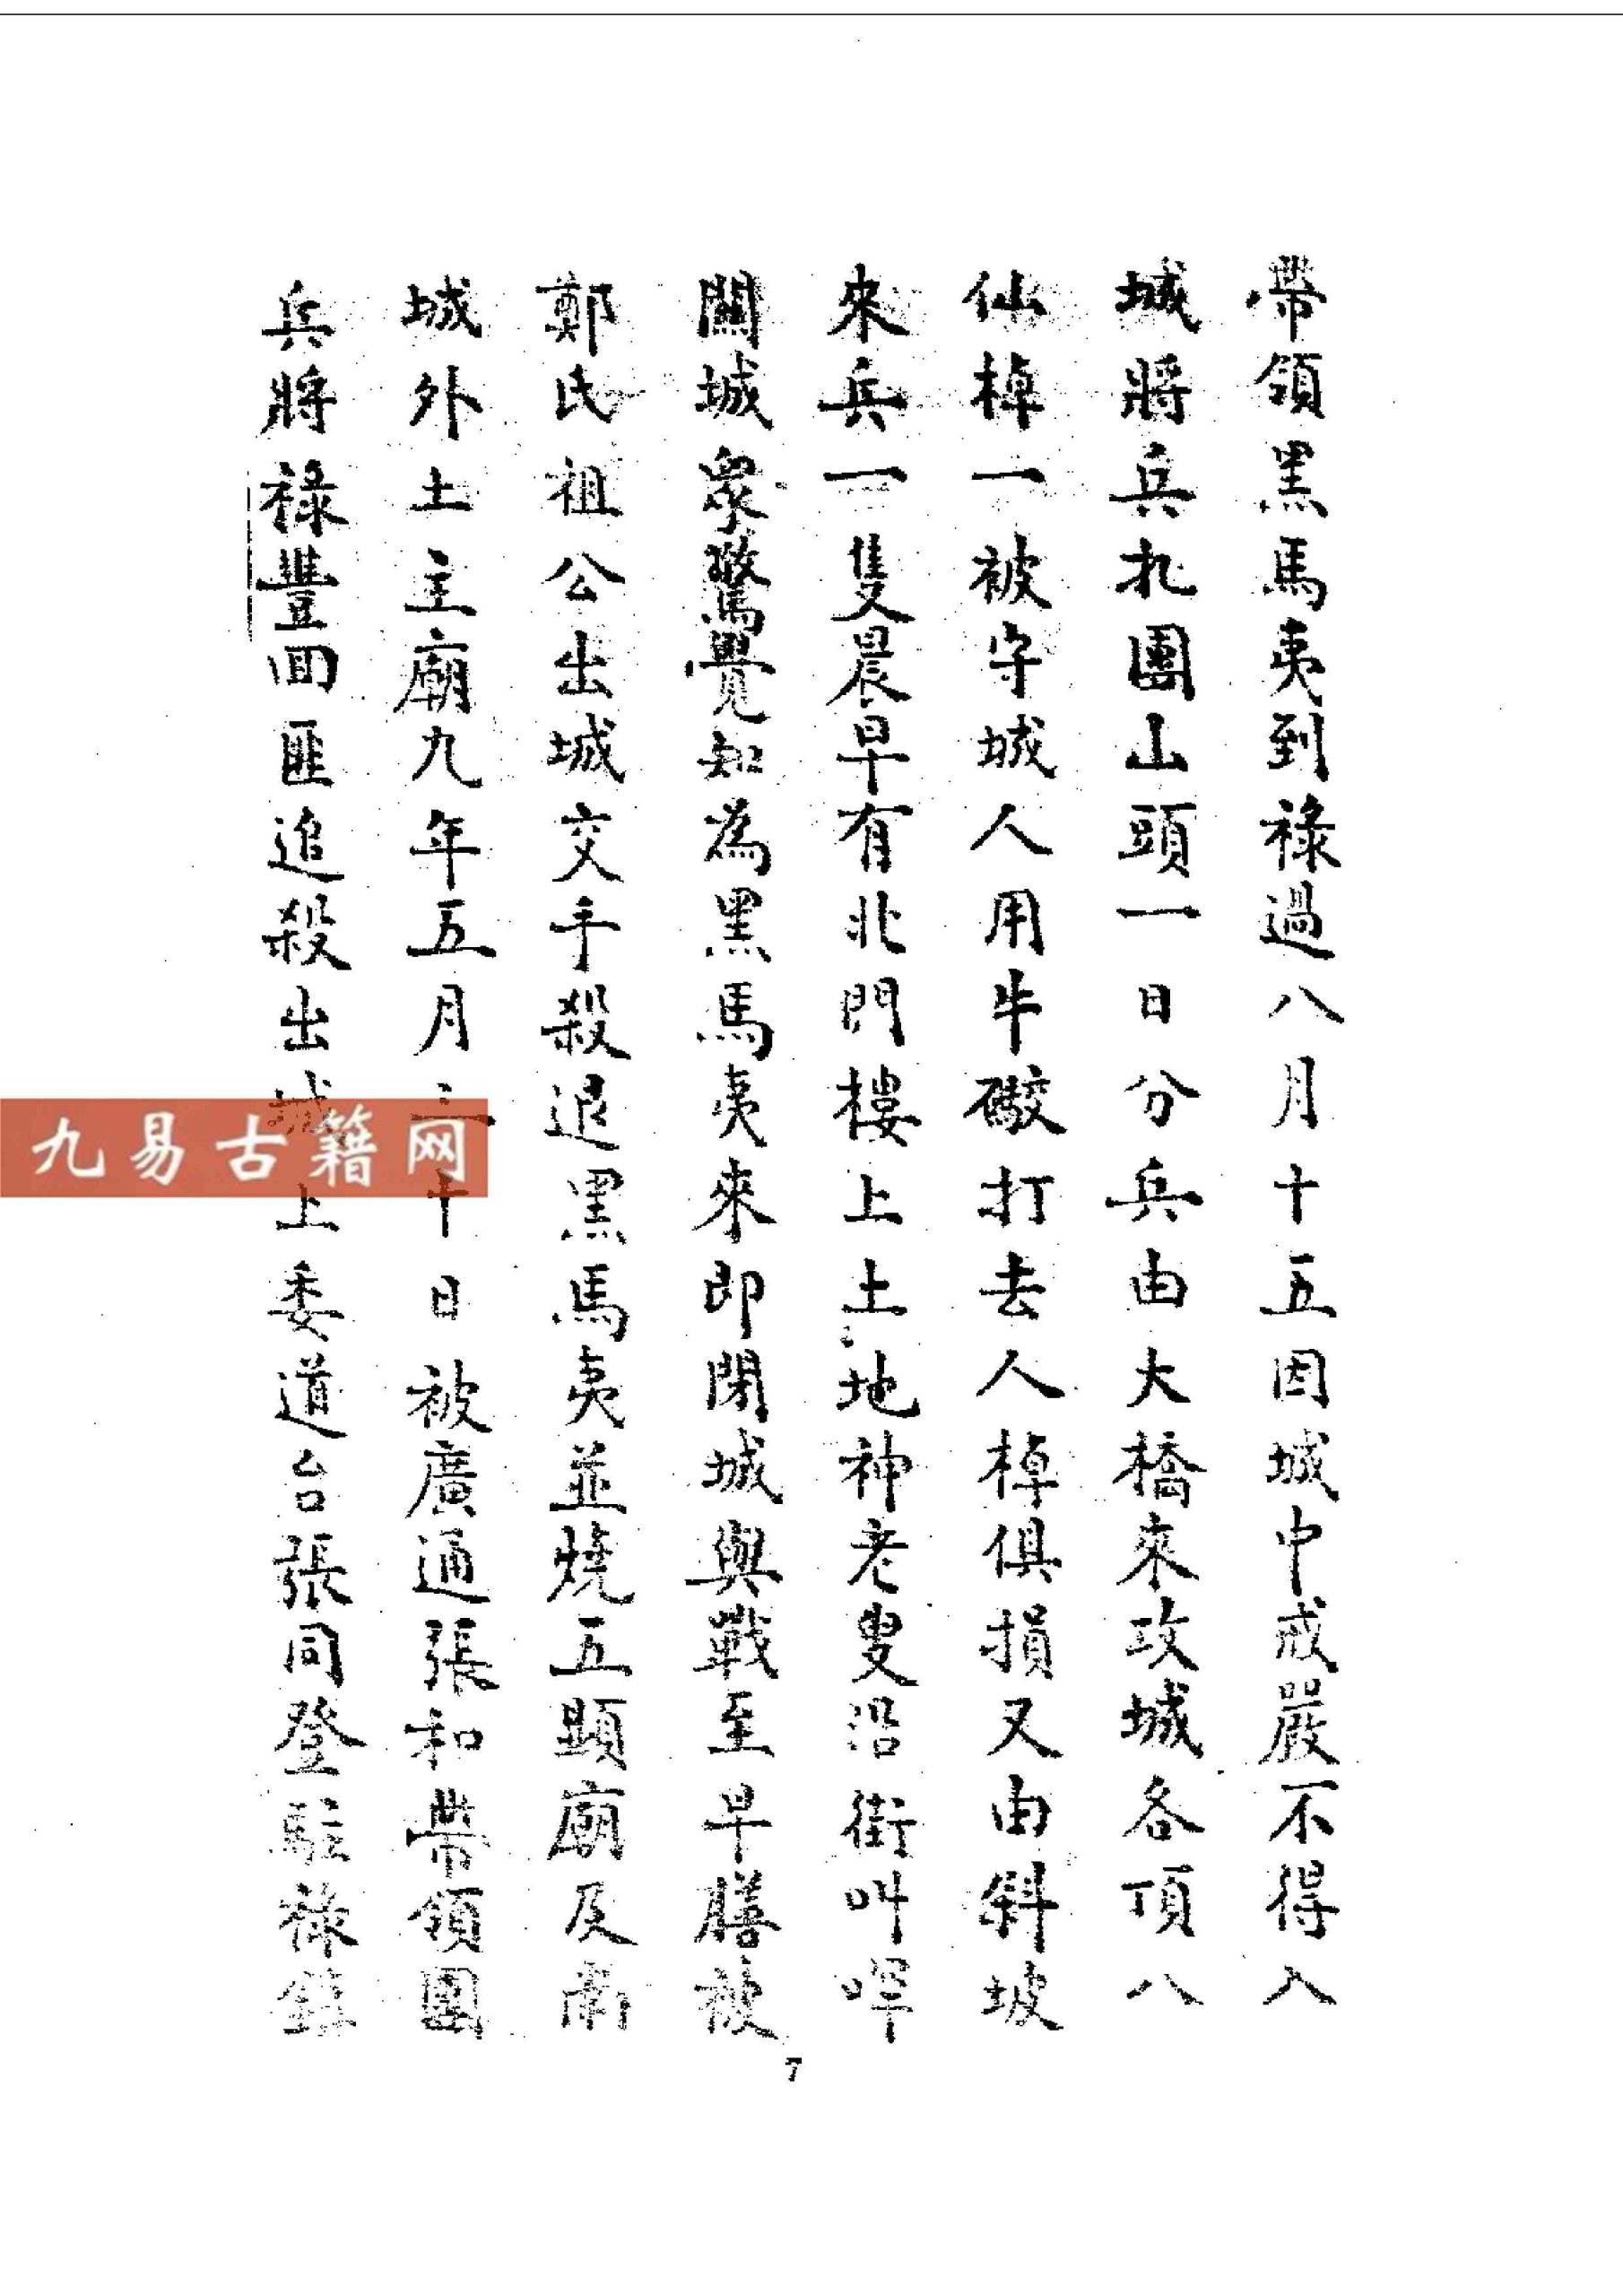 帶領黑馬夷到祿過八月十五因城中戒嚴不得入
城將兵扎團山頭一日分兵由大橋來攻城各頂八
仙棹一被守城人用牛礮打去人棹俱損又由斜坡
來兵一隻晨早有北門樓上土地神老叟沿街叫喊
闔城眾驚覺知為黑馬夷來即閉城與戰至早膳被
鄭氏祖公出城交手殺退黑馬夷並燒五顯廟及南
城外土主廟九年五月三十日被廣通張和帶領團
兵將祿豐回匪追殺出城上委道台張同登駐祿鎮
九易古籍网
7